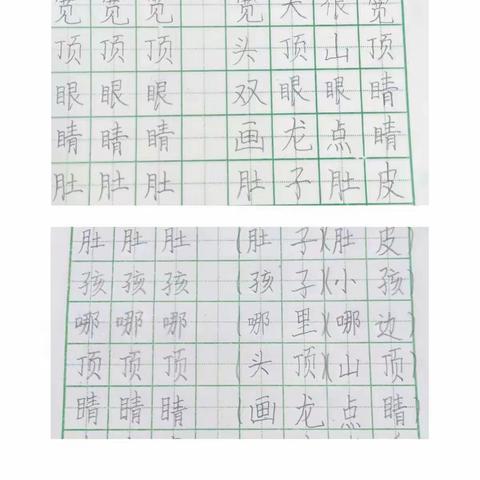 宽 宽 宽 宽 宽
顶 顶 顶 头 顶 山 顶
眼 眼 眼 双 眼 眼 睛
睛 睛 睛 画 龙 点 睛
肚 肚 肚 肚 子 肚 皮
肚 肚 肚 (肚 子)(肚 皮)
孩 孩 孩 (孩 子)(小 孩)
哪 哪 哪 (哪 里)(哪 边)
顶 顶 顶 (头 顶)(山 顶)
睛 睛 睛 (画 龙 点 睛)